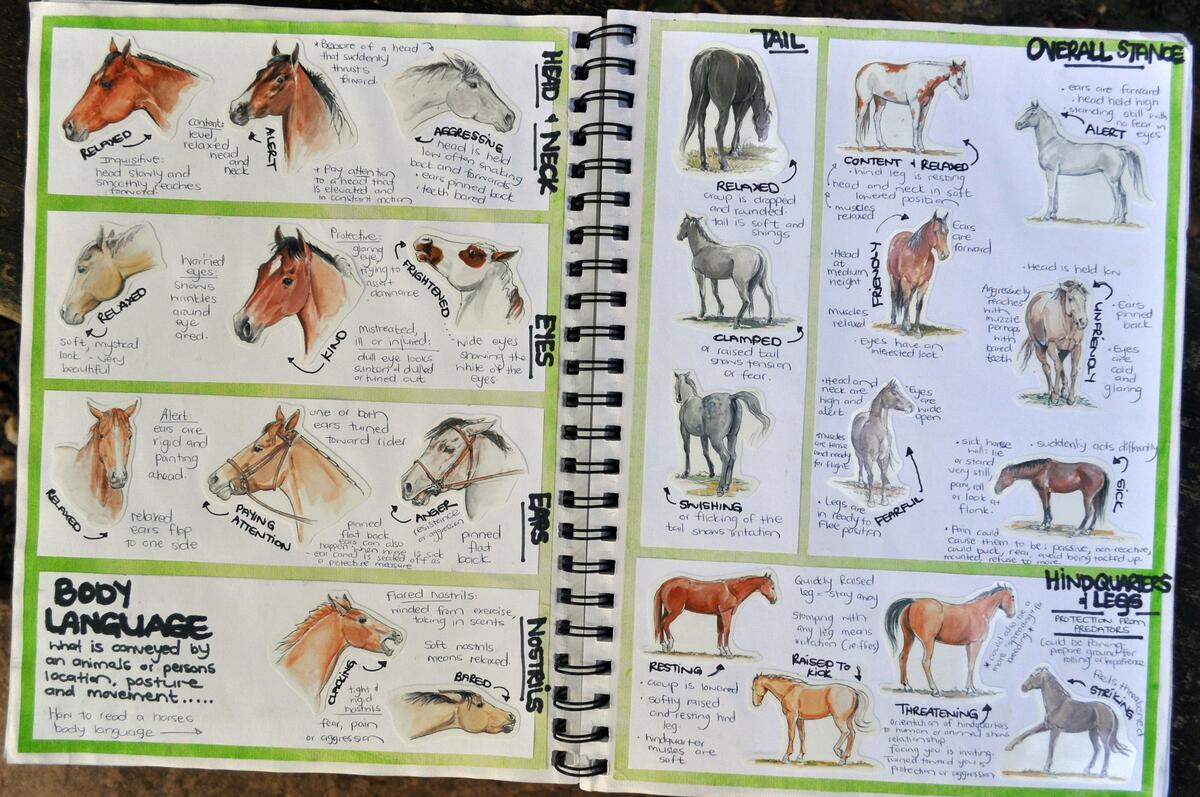 HEAD + NECK
RELAXED
Inquisitive:
head slowly and
smoothly reaches
forward.
Content:
level,
relaxed
head
and
neck
ALERT
* Beware of a head
that suddenly
thrusts
forward.
* Pay attention
to a head that
is elevated and
in constant motion
AGGRESSING
head is held
low often snaking
back and forwards.
• ears pinned back
• teeth bared
EYES
RELAXED
soft, mystical
look - very
beautiful
Worried
eyes:
shows
wrinkles
around
eye
area.
KIND
Protective:
glaring
eye,
trying to
assert
dominance
Mistreated,
ill or injured:
dull eye looks
sunken + dulled
or turned out
FRIGHTENED
wide eyes
showing the
white of the
eyes.
EARS
RELAXED
relaxed
ears flop
to one side
Alert:
ears are
rigid and
pointing
ahead.
PAYING
ATTENTION
one or both
ears turned
toward rider
pinned
flat back
ears can also
happen when horse is sick
- ear canal is sealed off as
a protective measure
ANGER
resistance
or aggression
pinned
flat
back
NOSTRILS
BODY
LANGUAGE
What is conveyed by
an animals or persons
location, posture
and movement.....
How to read a horses
body language
CLACKING
Flared nostrils:
winded from exercise,
taking in scents
Soft nostrils
means relaxed.
tight +
rigid
nostrils
fear, pain
or aggression
BARED
TAIL
RELAXED
croup is dropped
and rounded.
tail is soft and
swings
CLAMPED
or raised tail
shows tension
or fear.
SWISHING
or flicking of the
tail shows irritation
OVERALL STANCE
CONTENT + RELAXED
• hind leg is resting
head and neck in soft
lowered position
muscles
relaxed
• ears are forward
• head held high
• standing still with
no fear in
eyes
ALERT
FRIENDLY
Ears
are
forward
• Head
at
medium
height
Muscles
relaxed
• Eyes have an
interested look
UNFRIENDLY
• Head is held low
Aggressively
reaches
with
muzzle
perhaps
with
bared
teeth
• Ears
pinned
back
• Eyes
are
cold
and
glaring
• Head and
neck are
high and
alert
• Eyes
are
wide
open
muscles
are tense
and ready
for flight
• Legs are
in ready to
flee position
FEARFUL
• sick horse
will: lie
or stand
very still,
paw, roll
or look at
flank.
• suddenly acts differently
SICK
• Pain could
cause them to be: passive, non-reactive,
could buck, rear, avoid being tacked up,
mounted, refuse to move.
HINDQUARTERS
+ LEGS
PROTECTION FROM
PREDATORS
RESTING
• croup is lowered
• softly raised
and resting hind
leg.
• hindquarter
muscles are
soft
Quickly Raised
leg = stay away
Stomping with
any leg means
irritation (ie: flies)
RAISED TO
KICK
THREATENING
orientation of hindquarters
to human or animal shows
relationship.
Facing you is inviting.
Turned toward you is
protection or aggression
* Could also be a
mare
breeding
Could be
prepare ground for
rolling or impatience
STRIKING
feels threatened